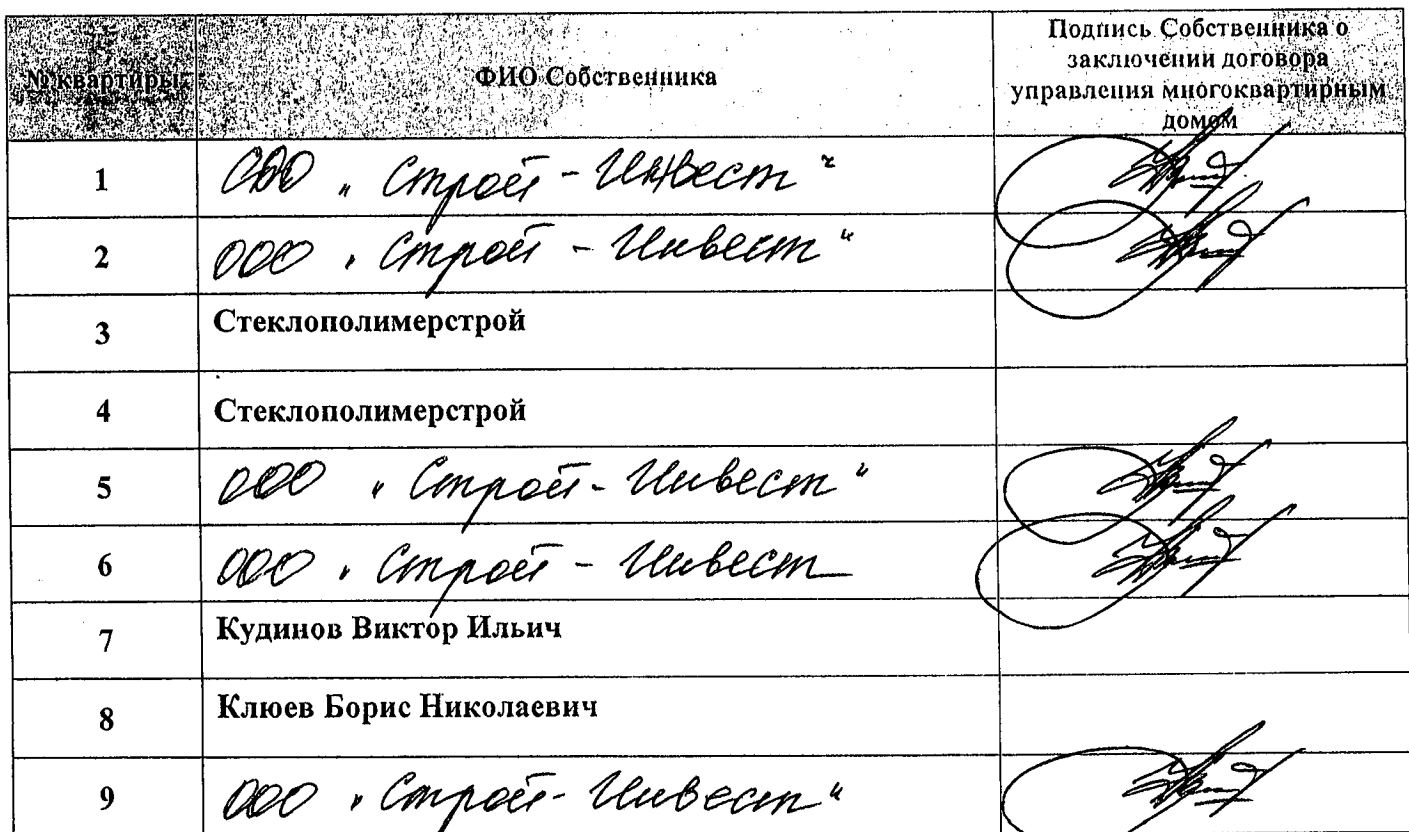 № квартиры ФИО Собственника Подпись Собственника о
заключении договора
управления многоквартирным
домом
1 ООО "Строй-Инвест"
2 ООО "Строй-Инвест"
3 Стеклополимерстрой
4 Стеклополимерстрой
5 ООО "Строй-Инвест"
6 ООО "Строй-Инвест
7 Кудинов Виктор Ильич
8 Клюев Борис Николаевич
9 ООО "Строй-Инвест"